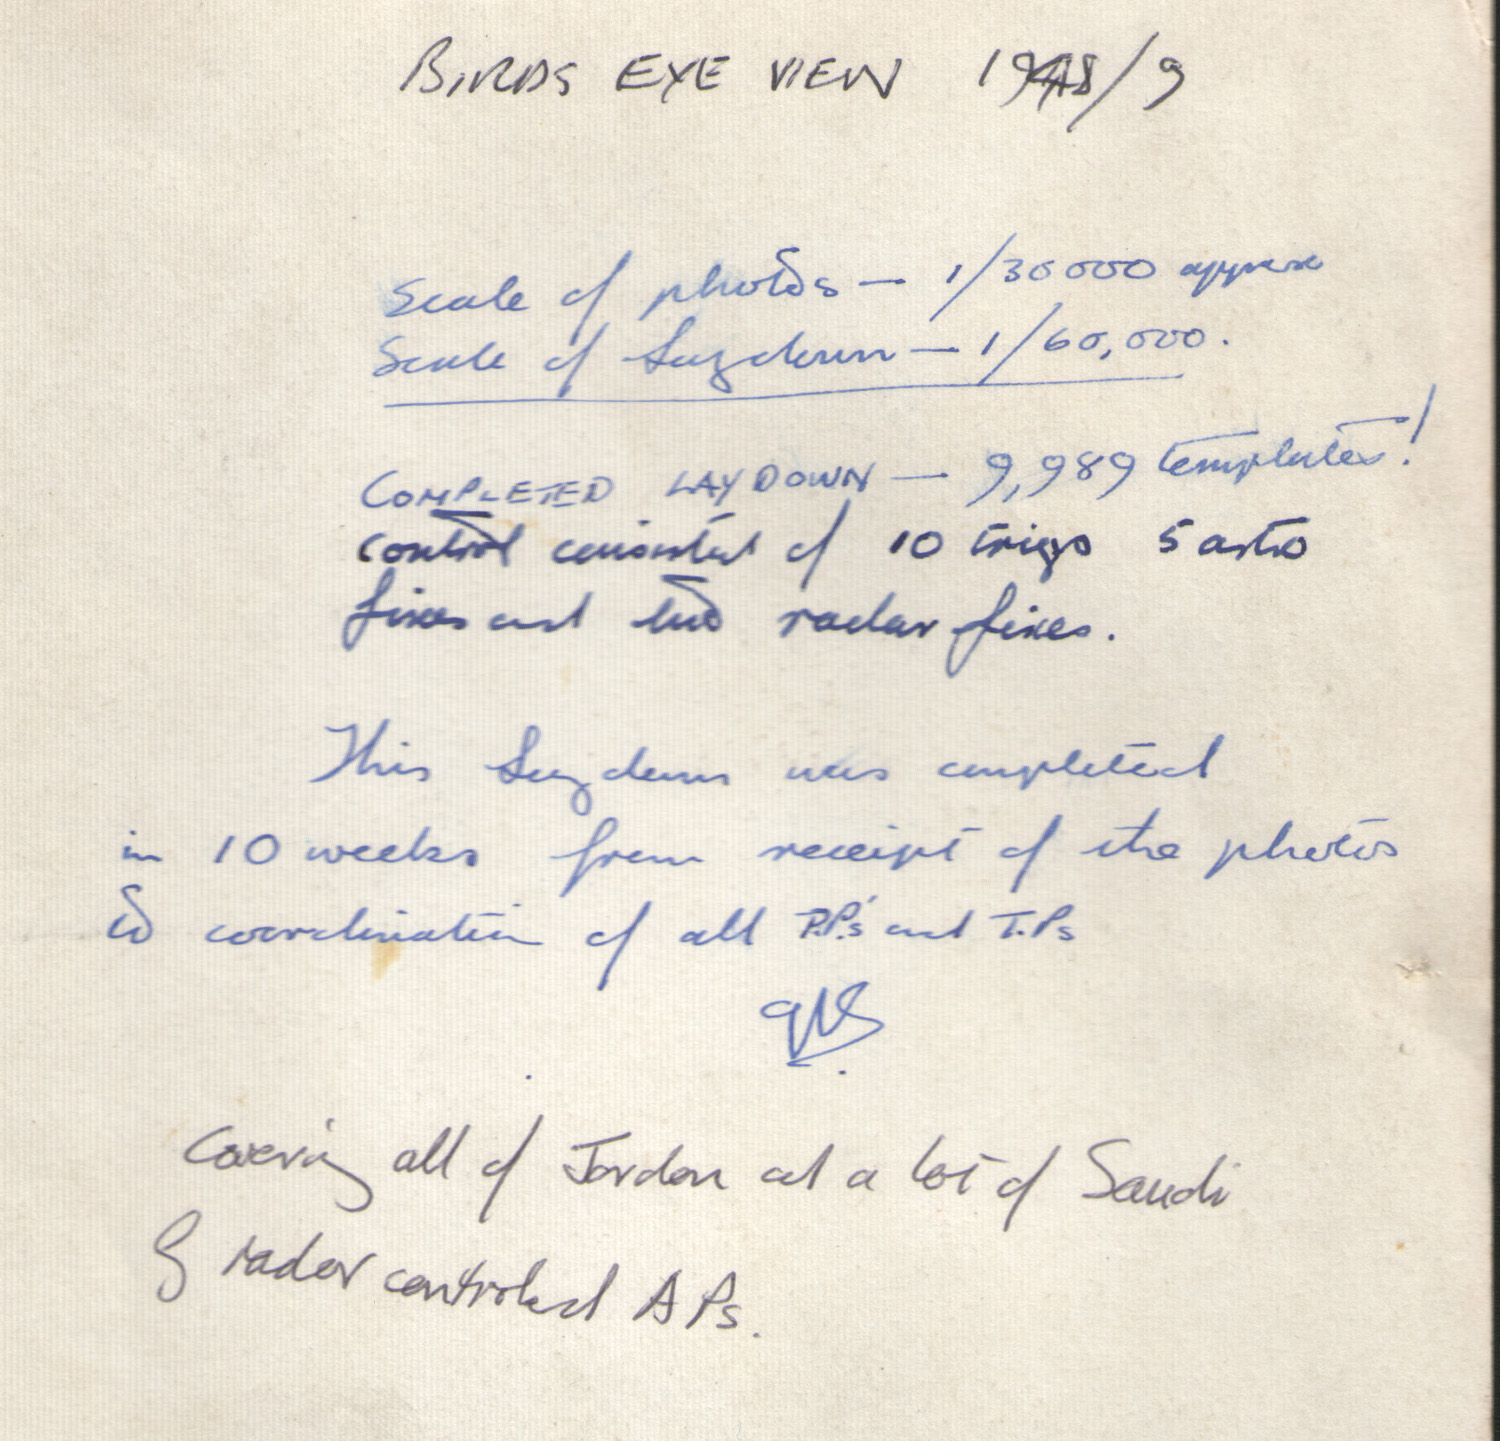 BIRDS EYE VIEW 1948/9
Scale of photos — 1/30000 approx
Scale of Laydown — 1/60,000.
COMPLETED LAYDOWN — 9,989 templates!
control consisted of 10 trigs 5 astro
fixes and two radar fixes.
This Laydown was completed
in 10 weeks from receipt of the photos
to coordination of all P.P.'s and T.Ps
Covering all of Jordan and a lot of Saudi
& radar controlled APs.